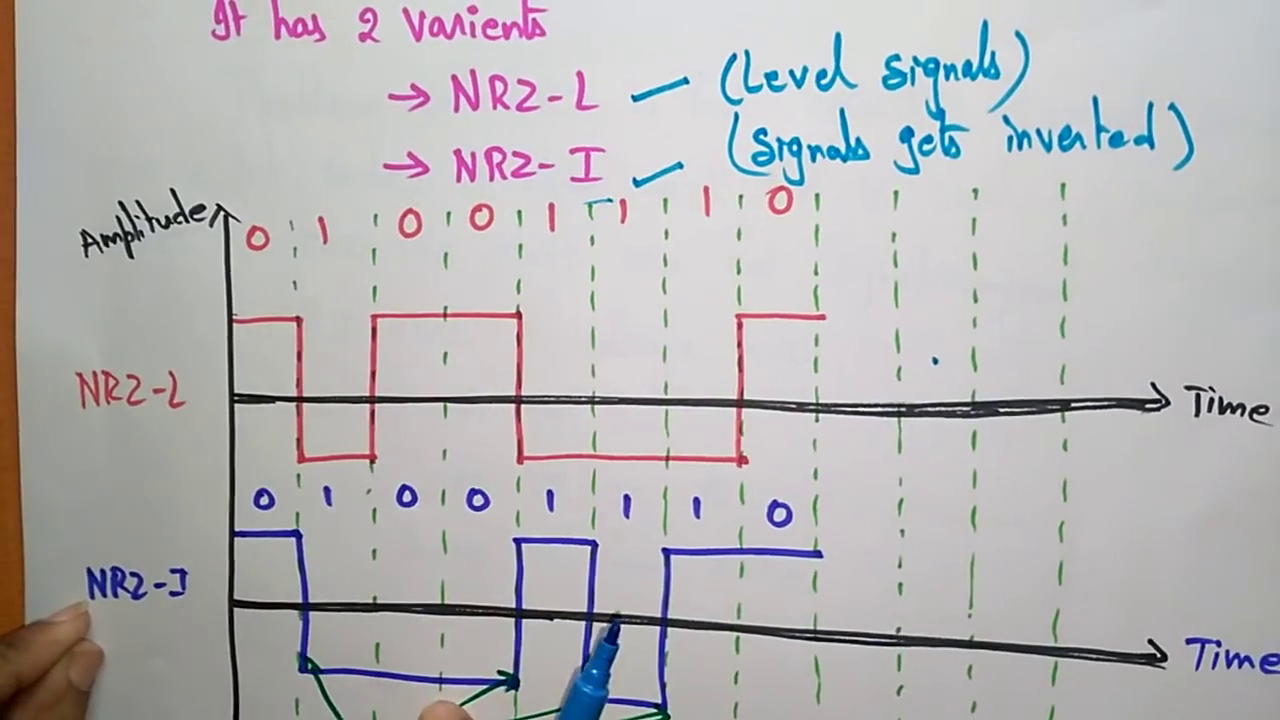 It has 2 varients
→ NRZ-L — (Level signals)
→ NRZ-I — (signals gets inverted)
Amplitude
0 1 0 0 1 1 1 0
NRZ-L
Time
0 1 0 0 1 1 1 0
NRZ-I
Time